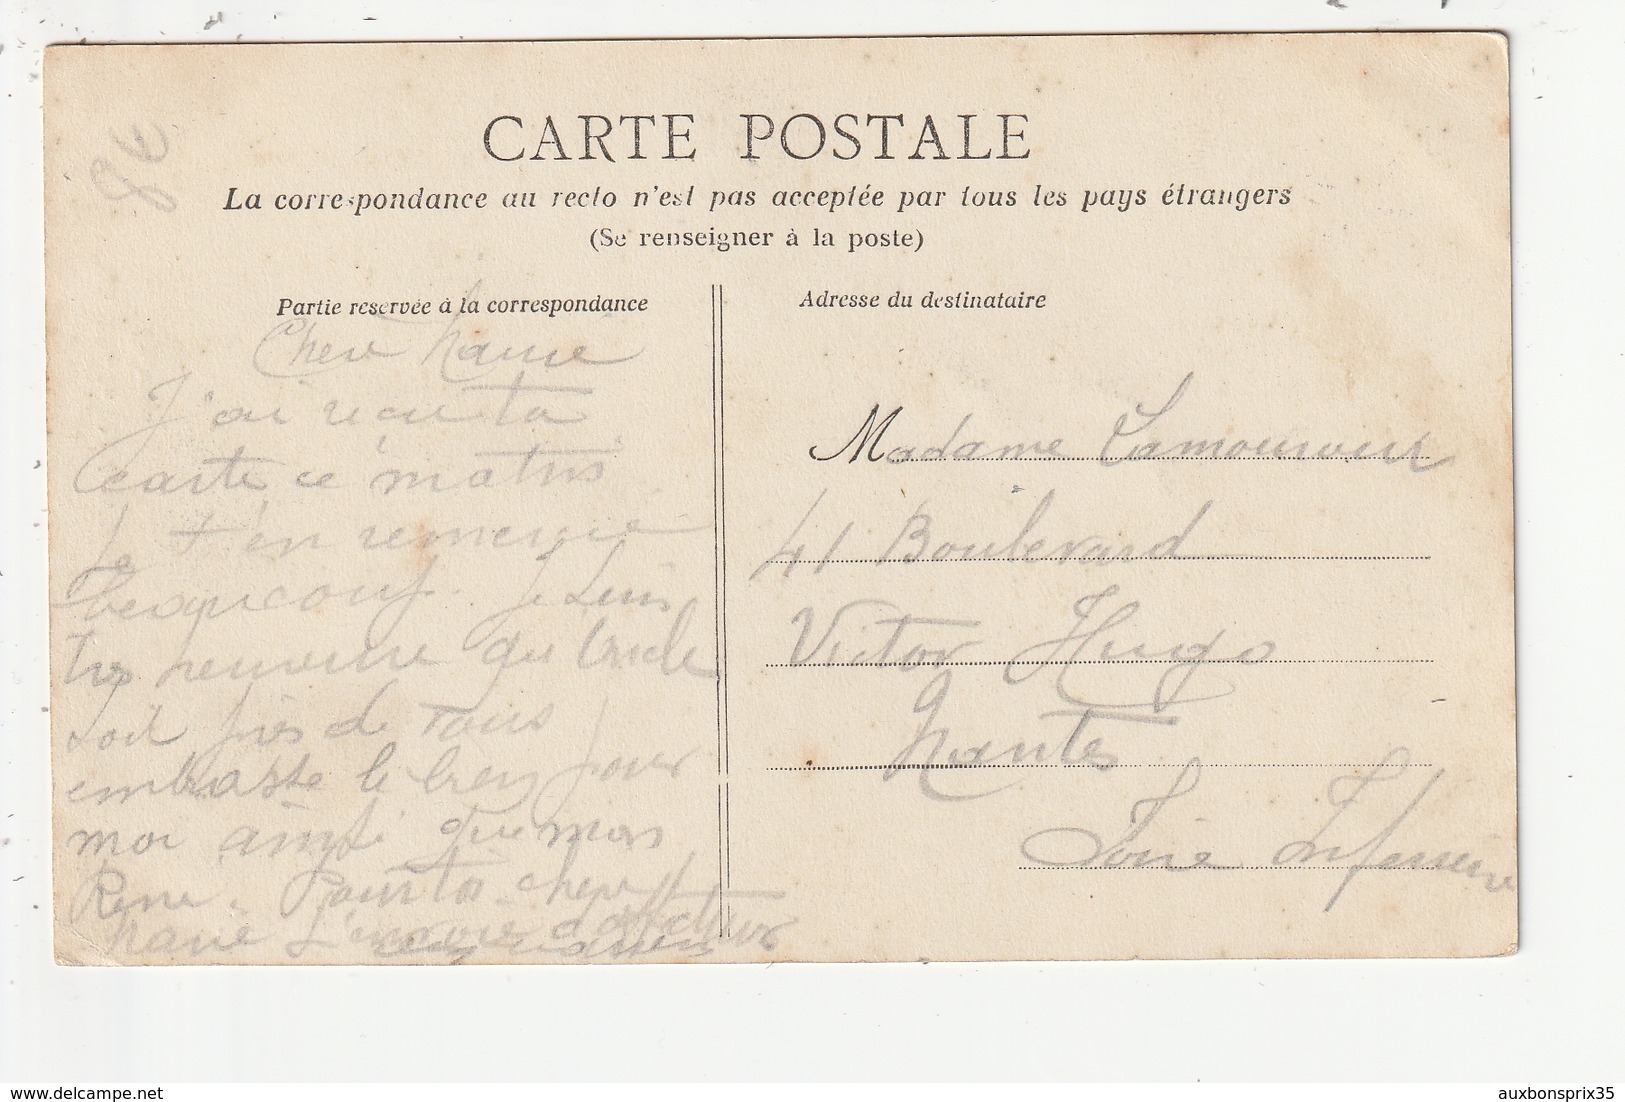 CARTE POSTALE
La correspondance au recto n'est pas acceptée par tous les pays étrangers
(Se renseigner à la poste)
Partie reservée à la correspondance
Chere
J'ai reçu ta
carte ce matin
Je t'en remercie
beaucoup. Je suis
très que
soit près de vous
embrasse le bien pour
moi ainsi que mon
Rene. Pour toi chere
Adresse du destinataire
Madame Lamouroux
41 Boulevard
Victor Hugo
Nantes
Loire Inferieure
delcampe.net
auxbonsprix35